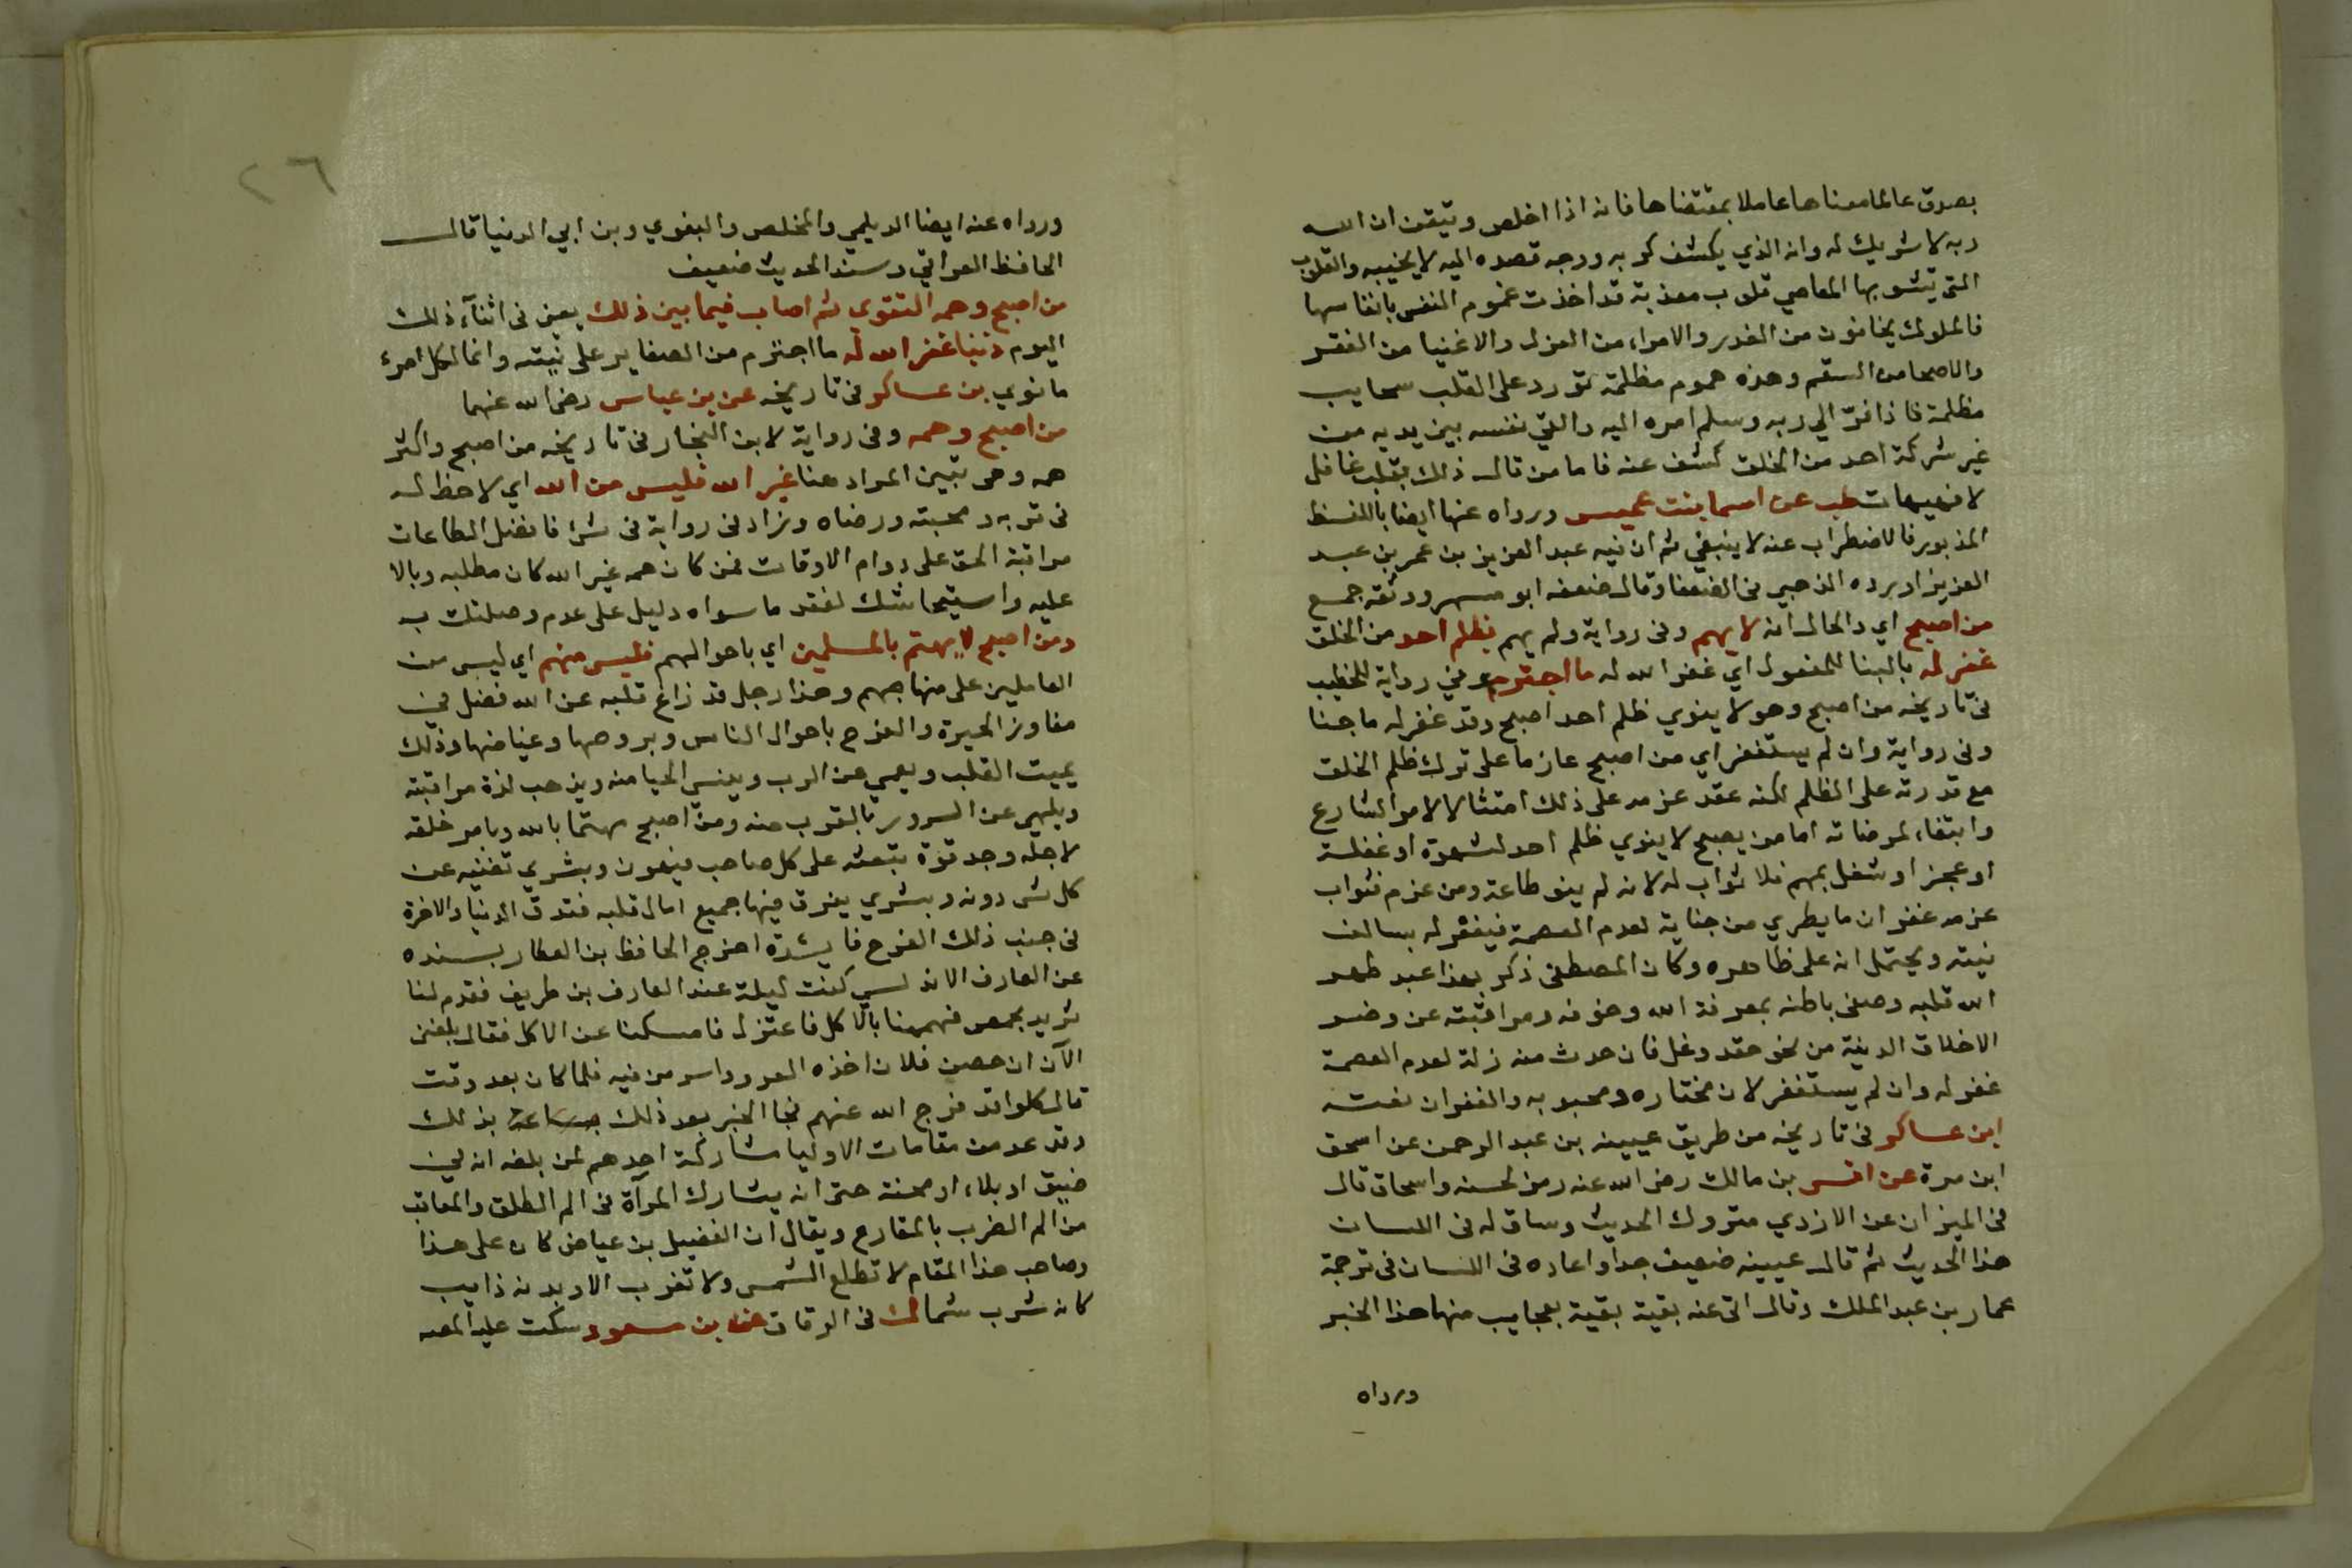 بصدق عالما معناها عاملا بمقتضاها فانه اذا اخلص وتيقن ان الله
ربه لا شريك له وانه الذي يكشف كربه ووجه قصده اليه لا يخيبه والقلوب
التي تشوبها المعاصي قلوب معذبة قد اخذت غموم النفس بانفاسها
فالملوك يخافون من الغدر والامراء من العزل والاغنيا من الفقر
والاصحا من السقم وهذه هموم مظلمة تورد على القلب سحايب
مظلمة فاذا فر الي ربه وسلم امره اليه والقي نفسه بين يديه من
غير شركة احد من الخلق كشف عنه فاما من قال ذلك بقلب غافل
لاه فهيهات طب عن اسما بنت عميس ورواه عنها ايضا باللفظ
المذبور فالاضطراب عنه لا ينبغي ثم ان فيه عبد العزيز بن عمر بن عبد
العزيز اورده الذهبي في الضعفا وقال ضعفه ابو مسهر ووثقه جمع
من اصبح اي والحال انه لا يهم وفي رواية ولم يهم بظلم احد من الخلق
غفر له بالبنا للمفعول اي غفر الله له ما اجترم وفي رواية للخطيب
في تاريخه من اصبح وهو لا ينوي ظلم احد اصبح وقد غفر له ما جنا
وفي رواية وان لم يستغفر اي من اصبح عازما على ترك ظلم الخلق
مع قدرته على الظلم لكنه عقد عزمه على ذلك امتثالا لامر الشارع
وابتغاء لمرضاته اما من يصبح لا ينوي ظلم احد لشهوة او غفلة
او عجز او شغل بمهم فلا ثواب له لانه لم ينو طاعة ومن عزم فثواب
عزمه غفران ما يطري من جناية لعدم العصمة فيغفر له بسالف
نيته ويحتمل انه على ظاهره وكان المصطفى ذكر بهذا عبد طهر
الله قلبه وصفى باطنه بمعرفة الله وخوفه ومراقبته عن وضر
الاخلاق الدنية من نحو حقد وغل فان حدث منه زلة لعدم العصمة
غفر له وان لم يستغفر لان مختاره ومحبوبه والغفران نعته
ابن عساكر في تاريخه من طريق عيينه بن عبد الرحمن عن اسحق
ابن مرة عن انس بن مالك رضي الله عنه رمز لحسنه واسحاق قال
في الميزان عن الازدي متروك الحديث وساق له في اللسان
هذا الحديث ثم قال عيينه ضعيف جدا واعاده في اللسان في ترجمة
عمار بن عبد الملك وقال اتى عنه بقية بقية بعجايب منها هذا الخبر
ورواه
٢٦
ورواه عنه ايضا الديلمي والمخلص والبغوي وبن ابي الدنيا قال
الحافظ العراقي وسند الحديث ضعيف
من اصبح وهمه التقوى ثم اصاب فيما بين ذلك يعني في اثناء ذلك
اليوم ذنبا غفر الله له ما اجترم من الصغاير على نيته وانما لكل امرء
ما نوي بن عساكر في تاريخه عن بن عباس رضي الله عنهما
من اصبح وهمه وفي رواية لابن النجار في تاريخه من اصبح واكثر
همه وهو تبيين المراد هنا غير الله فليس من الله اي لا حظ له
في قربه ومحبته ورضاه وزاد في رواية في شئ فافضل الطاعات
مراقبة الحق على دوام الاوقات فمن كان همه غير الله كان مطلبه وبالا
عليه واستيحاشك لفقد ما سواه دليل على عدم وصلتك به
ومن اصبح لا يهتم بالمسلمين اي باحوالهم فليس منهم اي ليس من
العاملين على منهاجهم وهذا رجل قد زاغ قلبه عن الله فضل في
مفاوز الحيرة والفرح باحوال الناس وبروصها وغياضها وذلك
يميت القلب ويعمي عن الرب وينسى الحيا منه ويذهب لذة مراقبته
ويلهي عن السرور بالقرب منه ومن اصبح مهتما بالله وبامر خلقه
لاجله وجد قوة تبعثه على كل صاحب فيعون وبشري تغنيه عن
كل شي دونه وبشري يغرق فيها جميع امال قلبه فتدق الدنيا والاخرة
في جنب ذلك الفرح فايدة اخرج الحافظ بن العطار بسنده
عن العارف الاندلسي كنت ليلة عند العارف بن طريف فقدم لنا
ثريد بحمص فهممنا بالاكل فاعتزل فامسكنا عن الاكل فقال بلغني
الآن ان حصن فلان اخذه العدو واسر من فيه فلما كان بعد وقت
قال كلوا قد فرج الله عنهم فجا الخبر بعد ذلك بساعة بذلك
وقد عد من مقامات الاوليا مشاركة احدهم لمن بلغه انه في
ضيق او بلاء او محنة حتى انه يشارك المرآة في الم الطلق والمعاقب
من الم الضرب بالمقارع ويقال ان الفضيل بن عياض كان على هذا
وصاحب هذا المقام لا تطلع الشمس ولا تغرب الا وبدنه ذايب
كانه شرب سما ك في الرقاق عن بن مسعود سكت عليه المصه